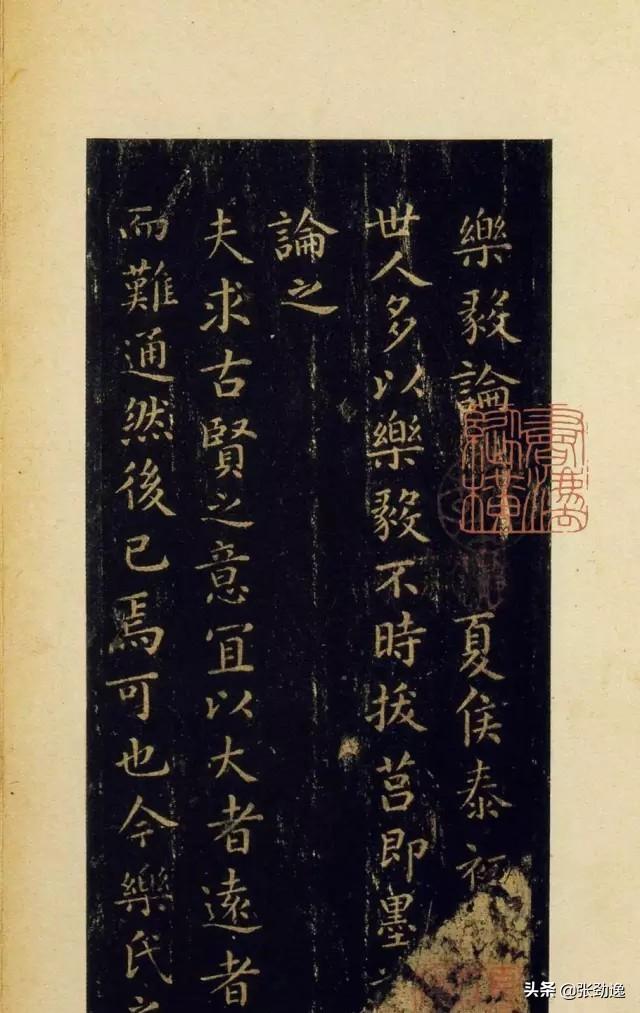 樂毅論 夏侯泰初
世人多以樂毅不時拔莒即墨
論之
夫求古賢之意宜以大者遠者
而難通然後已焉可也今樂氏之
头条 @张劲逸